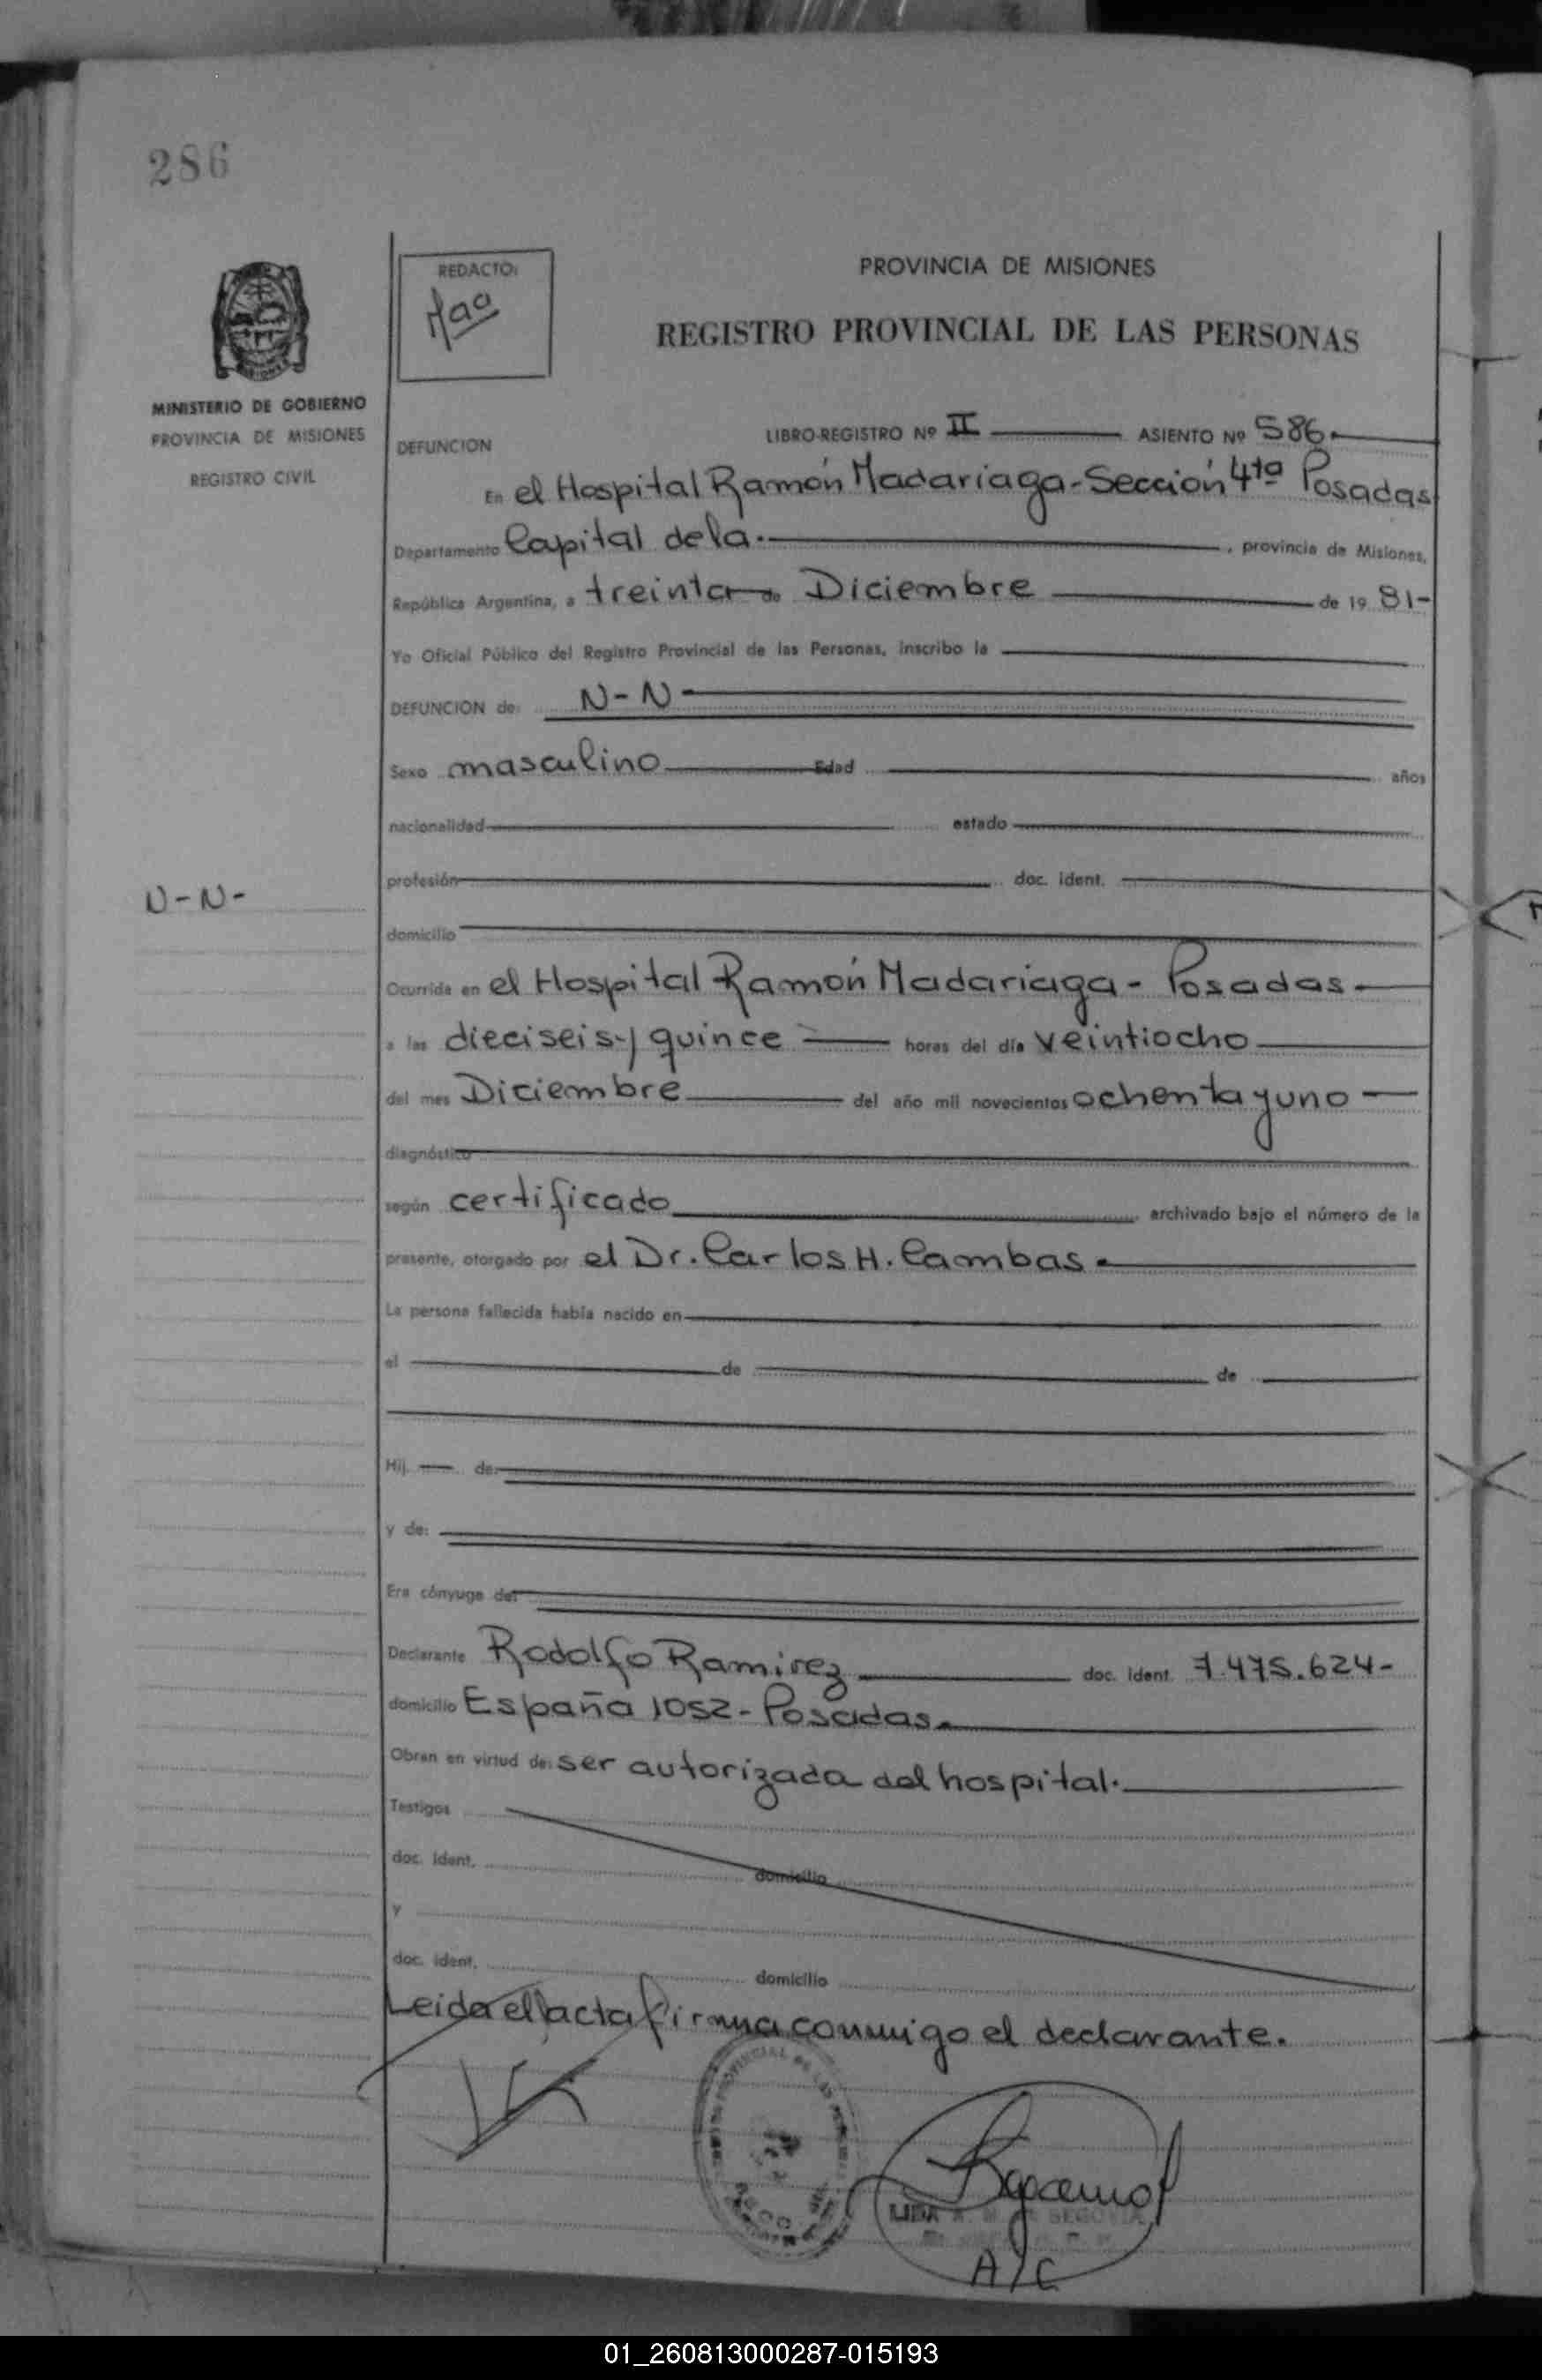 286
REDACTO:
PROVINCIA DE MISIONES
REGISTRO PROVINCIAL DE LAS PERSONAS
MINISTERIO DE GOBIERNO
PROVINCIA DE MISIONES
REGISTRO CIVIL
DEFUNCION
LIBRO-REGISTRO Nº II ASIENTO Nº 586.
En el Hospital Ramón Madariaga-Sección 4ta Posadas
Departamento Capital de la. , provincia de Misiones,
República Argentina, a treinta de Diciembre de 19 81-
Yo Oficial Público del Registro Provincial de las Personas, inscribo la
DEFUNCION de: N-N-
Sexo masculino Edad años
nacionalidad estado
profesión doc. ident.
N-N-
domicilio
Ocurrida en el Hospital Ramón Madariaga - Posadas.
a las dieciseis y quince horas del día veintiocho
del mes Diciembre del año mil novecientos ochenta y uno
diagnóstico
según certificado archivado bajo el número de la
presente, otorgado por el Dr. Carlos H. Cambas.
La persona fallecida había nacido en
el de de
Hij de:
y de:
Era cónyuge de:
Declarante Rodolfo Ramirez doc. ident. 7.475.624-
domicilio España 1052-Posadas.
Obran en virtud de: ser autorizada del hospital.
Testigos
doc. ident. domicilio
y
doc. ident. domicilio
Leida el acta firma conmigo el declarante.
PROVINCIAL DE LAS
LIDA SEGOVIA
A/C
01_260813000287-015193